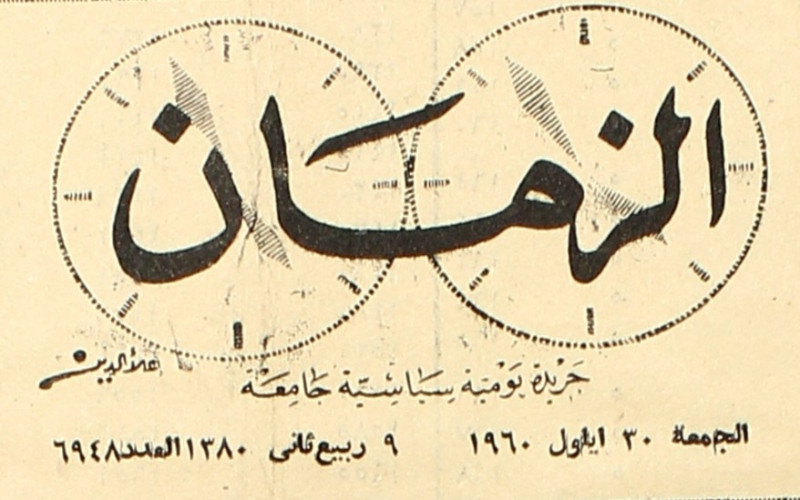 الزمان
علاءالدين
جريدة يومية سياسية جامعة
الجمعة ٣٠ ايلول ١٩٦٠ ٩ ربيع ثانى ١٣٨٠ العدد ٦٩٤٨